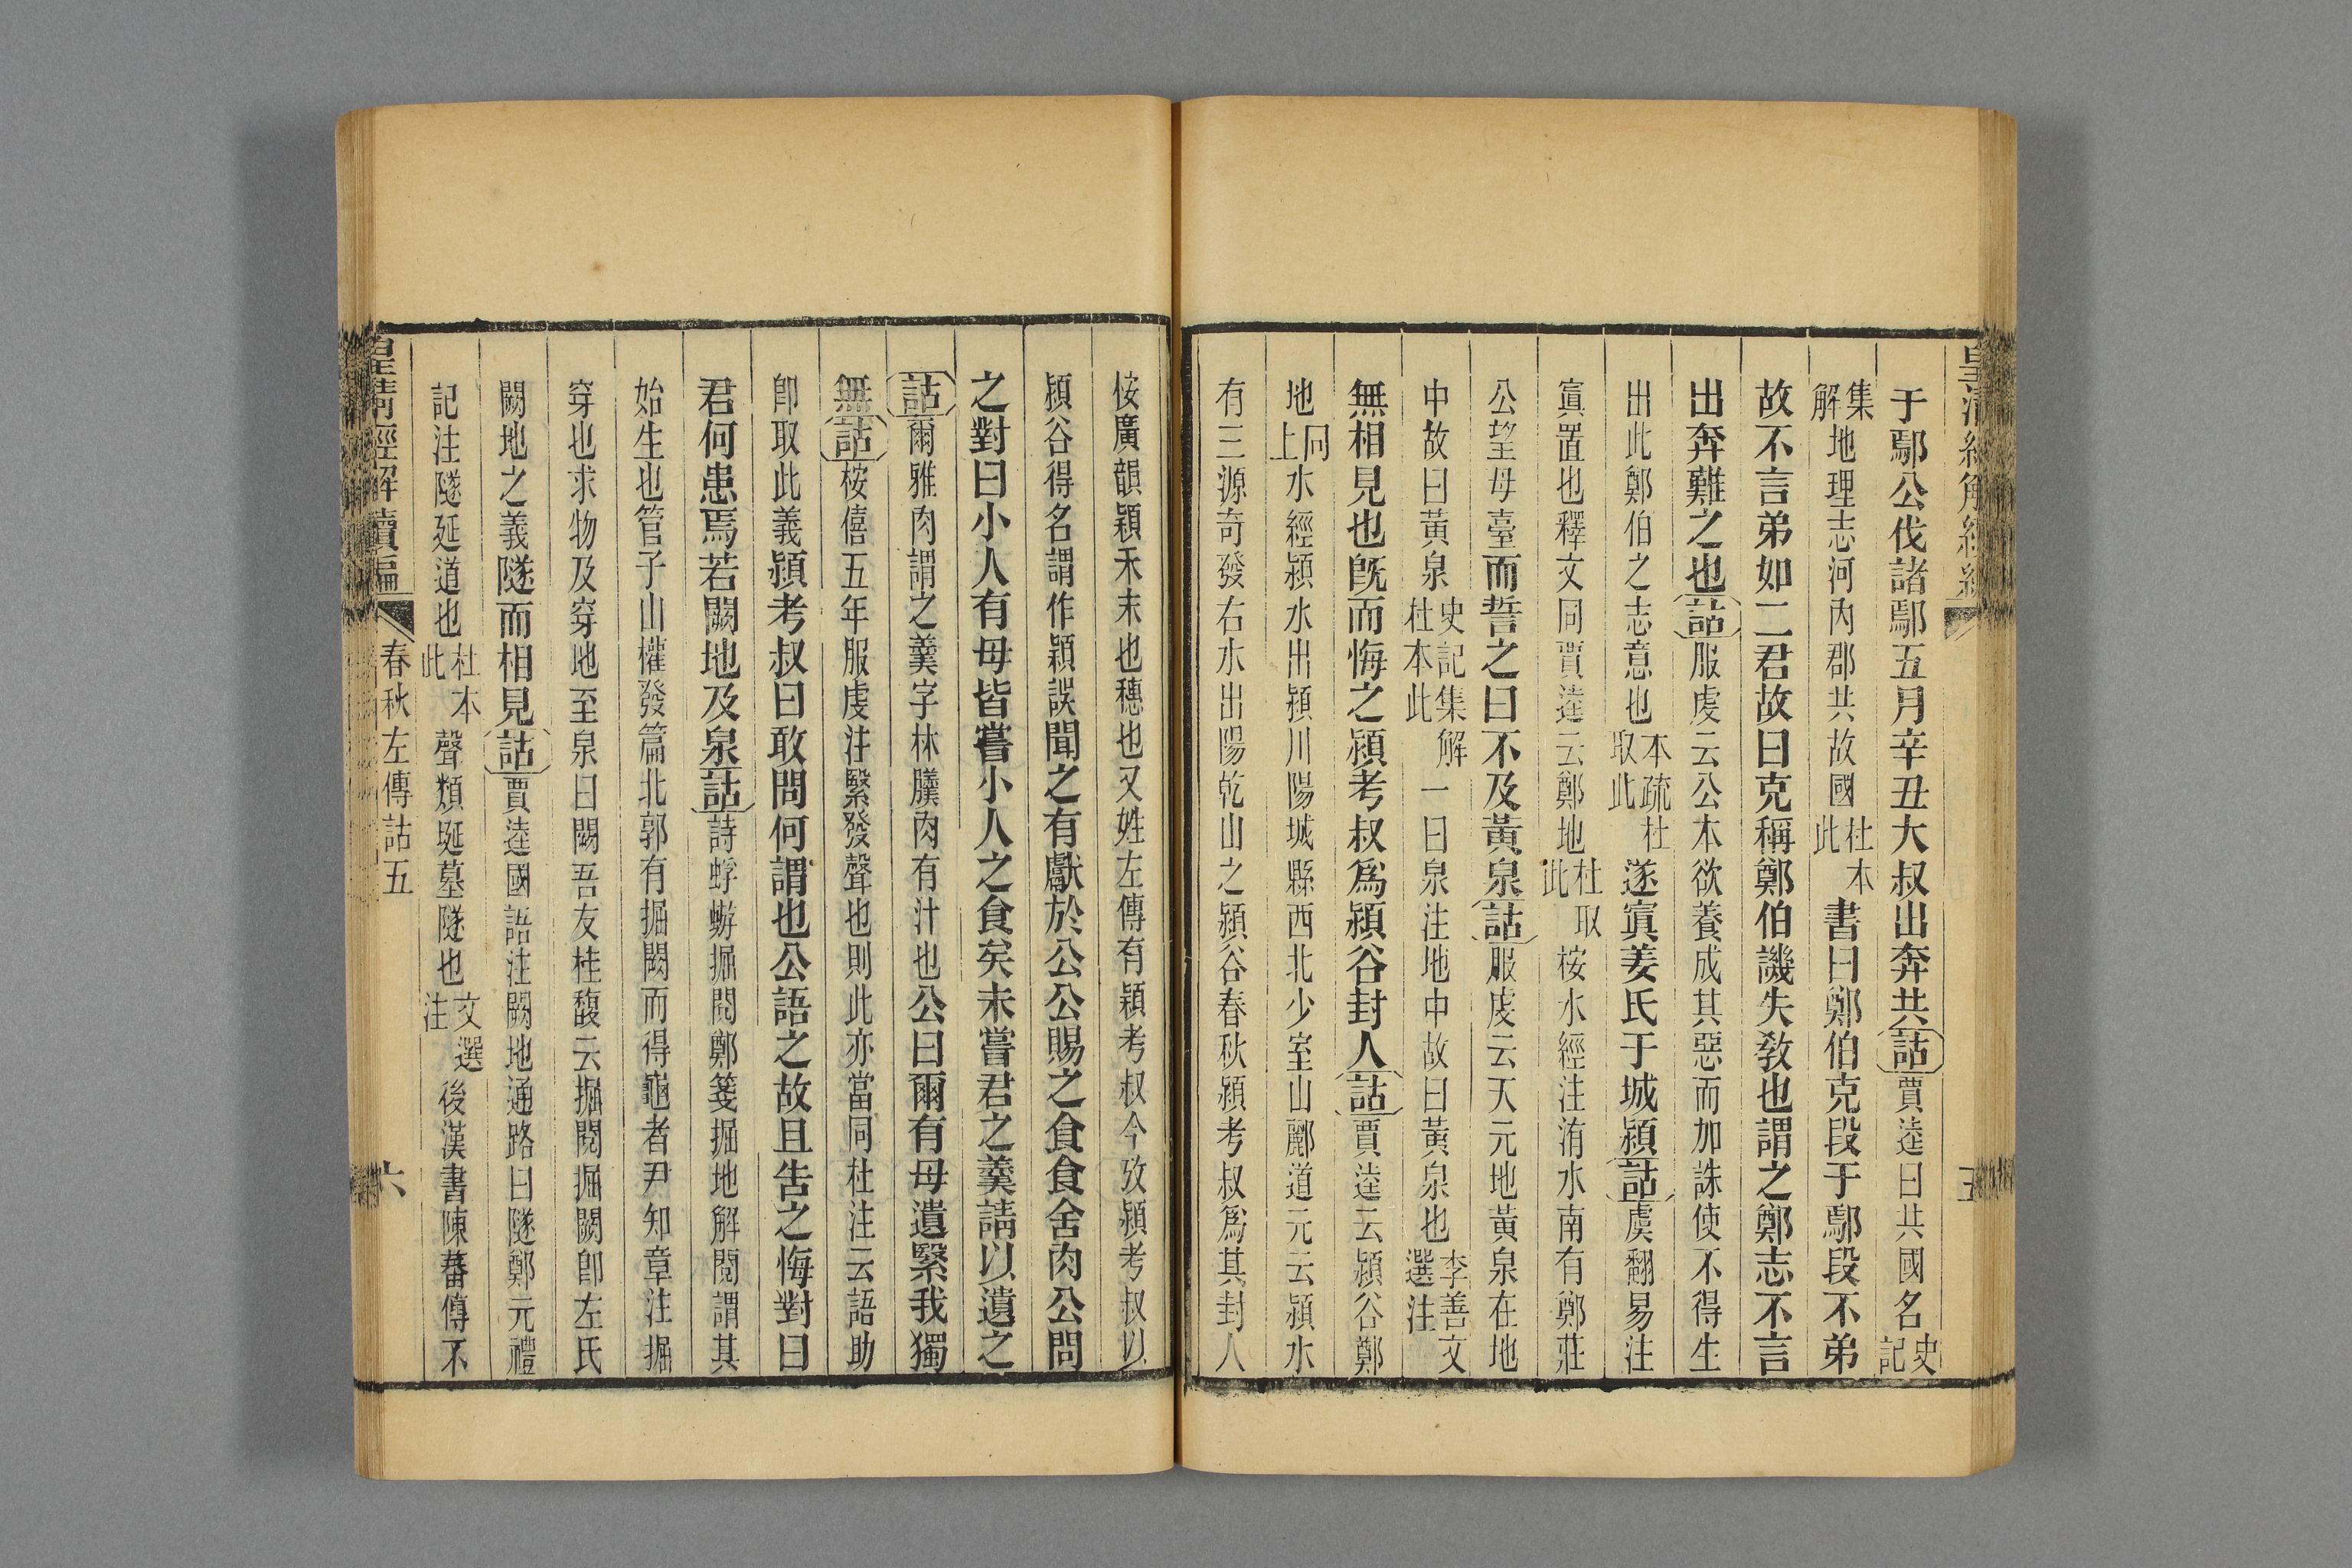 于鄢公伐諸鄢五月辛丑大叔出奔共詁賈逵曰共國名史記
集解地理志河內郡共故國杜本此書曰鄭伯克段于鄢段不弟
故不言弟如二君故曰克稱鄭伯譏失教也謂之鄭志不言
出奔難之也詁服虔云公本欲養成其惡而加誅使不得生
出此鄭伯之志意也本疏杜取此遂寘姜氏于城潁詁虞翻易注
寘置也釋文同賈逵云鄭地杜取此桉水經注洧水南有鄭莊
公望母臺而誓之曰不及黃泉詁服虔云天元地黃泉在地
中故曰黃泉史記集解杜本此一曰泉注地中故曰黃泉也李善文選注
無相見也旣而悔之潁考叔爲潁谷封人詁賈逵云潁谷鄭
地同上水經潁水出潁川陽城縣西北少室山酈道元云潁水
有三源奇發右水出陽乾山之潁谷春秋潁考叔爲其封人
桉廣韻潁禾末也穗也又姓左傳有潁考叔今攷潁考叔以
潁谷得名謂作潁誤聞之有獻於公公賜之食食舍肉公問
之對曰小人有母皆嘗小人之食矣未嘗君之羹請以遺之
詁爾雅肉謂之羹字林臐肉有汁也公曰爾有母遺繄我獨
無詁桉僖五年服虔注繄發聲也則此亦當同杜注云語助
卽取此義潁考叔曰敢問何謂也公語之故且告之悔對曰
君何患焉若闕地及泉詁詩蜉蝣掘閱鄭箋掘地解閱謂其
始生也管子山權發篇北郭有掘闕而得龜者尹知章注掘
穿也求物及穿地至泉曰闕吾友桂馥云掘閱掘闕卽左氏
闕地之義隧而相見詁賈逵國語注闕地通路曰隧鄭元禮
記注隧延道也杜本此聲類埏墓隧也文選注後漢書陳蕃傳不
皇淸經解續編
春秋左傳詁五
六